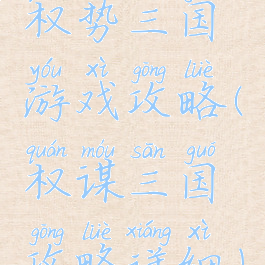 权势三国
yóu xì gōng lüè
游戏攻略(
quán móu sān guó
权谋三国
gōng lüè xiáng xì
攻略详细)